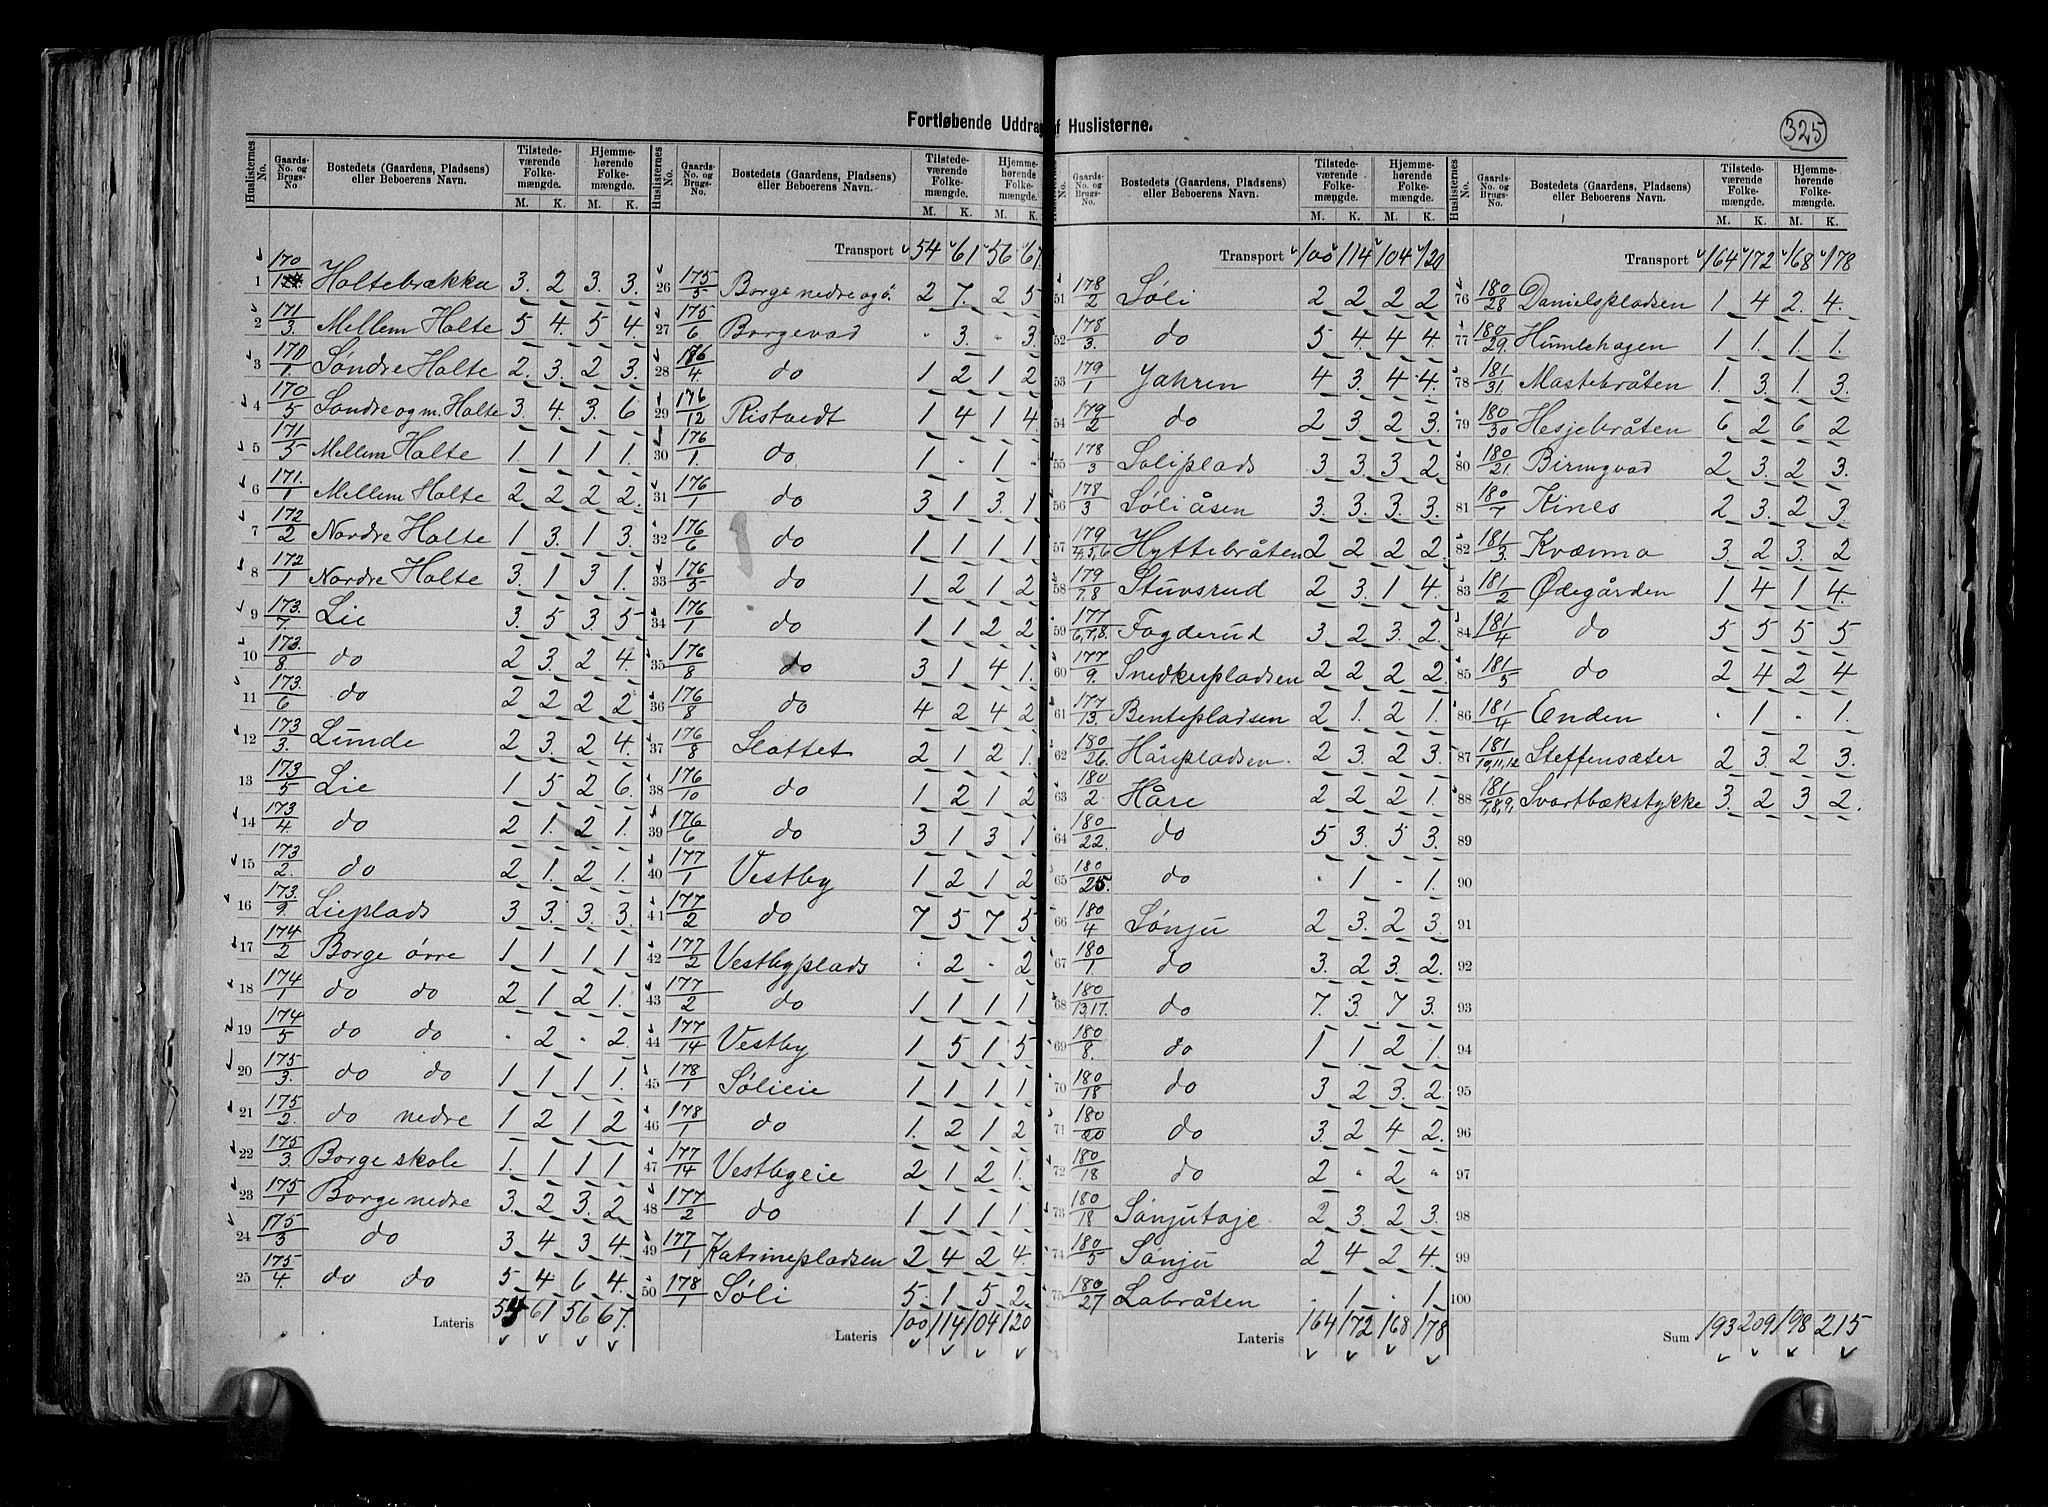 Fortløbende Uddrag af Huslisterne.
325
Huslisternes No. | Gaards-No. og Brugs-No | Bostedets (Gaardens, Pladsens) eller Beboerens Navn. | Tilstedeværende Folkemængde. M. K. | Hjemmehørende Folkemængde. M. K.
1 170/ Holtebrækka 3. 2 3. 3.
2 171/3. Mellem Holte 5 4. 5 4.
3 170/1. Søndre Holte 2. 3. 2 3.
4 170/5 Søndre og m. Holte 3. 4. 3. 6
5 171/5 Mellem Holte 1. 1. 1 1.
6 171./1 Mellem Holte 2 2 2 2.
7 172/2 Nordre Holte 1 3. 1 3.
8 172/1 Nordre Holte 3. 1 3 1.
9 173./7. Lie 3. 5 3. 5
10 173./8. do 2 3. 2 4.
11 173./6 do 2 2 2 2
12 173/3. Lunde 2 3. 2 4.
13 173/5 Lie 1 5 2 6.
14 173/4. do 2 1. 2 1.
15 173/2. do 2 1. 2 1.
16 173./9. Lieplads 3 3. 3. 3.
17 174/2 Borge øvre 1 1 1 1
18 174/1 do do 2 1 2 1.
19 174/5 do do - 2 - 2.
20 175/3. do do 1 1 1 1.
21 175/2. do nedre 1 2 1 2
22 175/3. Borge skole 1. 1 1 1
23 175/1 Borge nedre 3. 2 3. 2
24 175/3 do 3 4. 3 4.
25 175/4. do do 5 4 6 4.
Lateris 54 61 56 67.
Transport 54 61 56 67.
26 175/5 Borge nedre og ö. 2 7. 2 5
27 175/6 Borgevad - 3. - 3.
28 186/4. do 1 2 1 2
29 176/12 Ristvedt 1 4 1 4.
30 176/1. do 1 - 1 -
31 176/1 do 3 1 3. 1
32 176/6 do 1 1 1 1
33 176/5 do 1 2 1 2
34 176/1 do 1 1 2 2
35 176/8 do 3 1 4 1.
36 176/8 do 4 2 4 2
37 176/8 Slottet 2 1 2 1.
38 176/10 do 1 2 1 2
39 176/6 do 3 1 3 1
40 177/1 Vestby 1 2 1 2
41 177/2 do 7 5 7 5
42 177/2 Vestbyplads - 2 - 2
43 177/2 do 1 1 1 1
44 177/14 Vestby 1 5 1 5
45 178/1 Sølieie 1 1 1 1
46 178/1 do 1. 2 1 2
47 177/14 Vestbyeie 2 1 2 1.
48 177/2 do 1 1 1 1
49 177/1 Katrinepladsen 2 4 2 4.
50 178/1 Søli 5 1 5 2.
Lateris 100 114 104 120
Transport 100 114 104 120
51 178/2 Søli 2 2 2 2
52 178/3. do 5 4 4 4
53 179/1 Jahren 4 3. 4 4.
54 179/2 do 2 3. 2 3.
55 178/3 Søliplads 3 3. 3 2
56 178/3 Søliåsen 3. 3. 3. 3.
57 179/4,5,6 Hyttebråten 2 2 2 2.
58 179/7,8 Stuvsrud 2 3. 1 4.
59 177/6,7,8. Fagderud 3 2 3. 2.
60 177/9. Snedkerpladsen 2 2 2 2.
61 177/13. Bentepladsen 2 1. 2 1.
62 180/26. Hårepladsen. 2 3. 2 3.
63 180/2 Håre 2 2 2 1.
64 180/22. do 5 3. 5 3.
65 180/25. do - 1 - 1.
66 180/4 Sønju 2 3. 2 3.
67 180/1. do 3. 2 3. 2.
68 180/13,17. do 7. 3. 7 3.
69 180/8. do 1 1 2 1.
70 180/18 do 3 2 3. 2.
71 180/20 do 3. 2 4 2.
72 180/18 do 2 " 2 "
73 180/18 Sønjutaje 2 3. 2 3.
74 180/5 Sønju 2 4 2 4.
75 180/27 Labråten - 1 - 1
Lateris 164 172 168 178
Transport 164 172 168 178
76 180/28 Danielspladsen 1 4 2. 4.
77 180/29. Humlehagen 1 1. 1 1.
78 181/31. Mastebråten 1. 3 1. 3.
79 180/30 Hesjebråten 6 2 6 2
80 180/21. Birmgvad 2 3. 2 3.
81 180/7 Kines 2 3. 2 3
82 181/3. Kværma 3 2 3. 2
83 181/2 Ødegården 1 4 1 4.
84 181/4 do 5 5 5 5
85 181/5 do 2 4 2 4
86 181/4 Enden - 1 - 1.
87 181/10,11,12 Steffensæter 2 3. 2 3.
88 181/7,8,9, Svartbækstykke 3. 2 3 2.
89
90
91
92
93
94
95
96
97
98
99
100
Sum 193 209 198 215